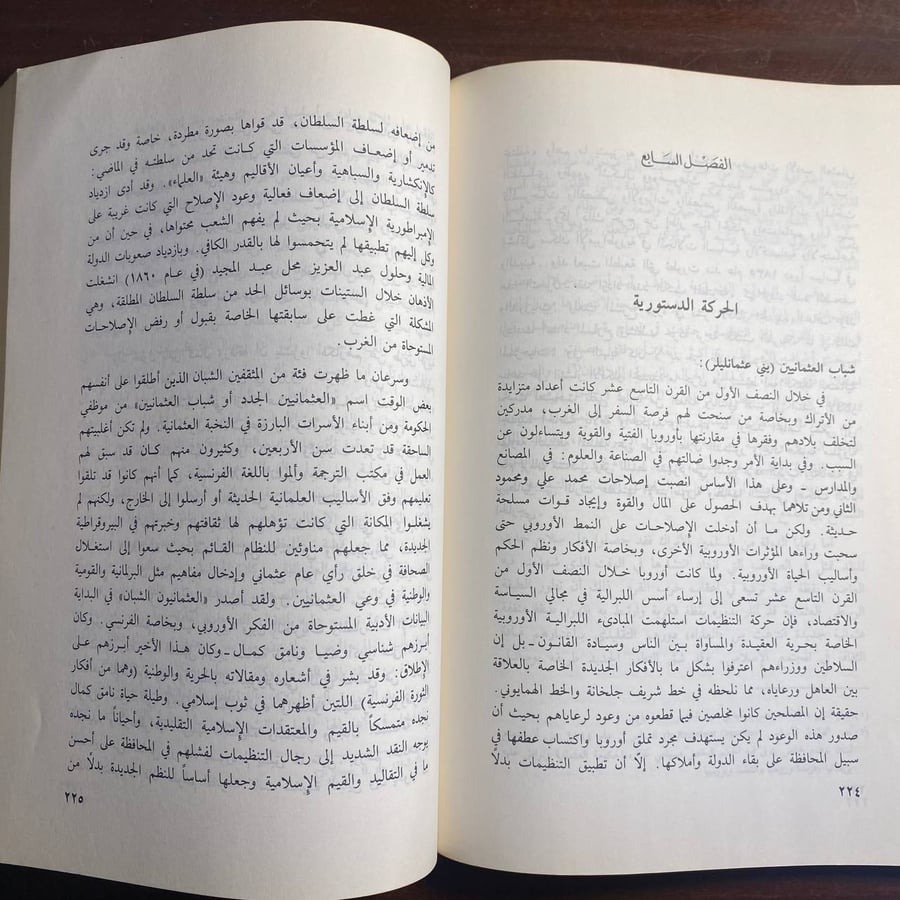 الفصل السابع
الحركة الدستورية
شباب العثمانيين (يني عثمانليلر):
في خلال النصف الأول من القرن التاسع عشر كانت أعداد متزايدة
من الأتراك وبخاصة من سنحت لهم فرصة السفر إلى الغرب، مدركين
لتخلف بلادهم وفقرها في مقارنتها بأوروبا الفتية والقوية ويتساءلون عن
السبب. وفي بداية الأمر وجدوا ضالتهم في الصناعة والعلوم: في المصانع
والمدارس - وعلى هذا الأساس انصبت إصلاحات محمد علي ومحمود
الثاني ومن تلاهما بهدف الحصول على المال والقوة وإيجاد قوات مسلحة
حديثة. ولكن ما أن أدخلت الإصلاحات على النمط الأوروبي حتى
سحبت وراءها المؤثرات الأوروبية الأخرى، وبخاصة الأفكار ونظم الحكم
وأساليب الحياة الأوروبية. ولما كانت أوروبا خلال النصف الأول من
القرن التاسع عشر تسعى إلى إرساء أسس اللبرالية في مجالي السياسة
والاقتصاد، فإن حركة التنظيمات استلهمت المبادىء اللبرالية الأوروبية
الخاصة بحرية العقيدة والمساواة بين الناس وسيادة القانون - بل إن
السلاطين ووزراءهم اعترفوا بشكل ما بالأفكار الجديدة الخاصة بالعلاقة
بين العاهل ورعاياه، مما نلحظه في خط شريف جلخانة والخط الهمايوني.
حقيقة إن المصلحين كانوا مخلصين فيما قطعوه من وعود لرعاياهم بحيث أن
صدور هذه الوعود لم يكن يستهدف مجرد تملق أوروبا واكتساب عطفها في
سبيل المحافظة على بقاء الدولة وأملاكها. إلّا أن تطبيق التنظيمات بدلًا
٢٢٤
من إضعافه لسلطة السلطان، قد قواها بصورة مطردة، خاصة وقد جرى
تدمير أو إضعاف المؤسسات التي كانت تحد من سلطته في الماضي:
كالإنكشارية والسباهية وأعيان الأقاليم وهيئة «العلماء». وقد أدى ازدياد
سلطة السلطان إلى إضعاف فعالية وعود الإصلاح التي كانت غريبة على
الإمبراطورية الإسلامية بحيث لم يفهم الشعب محتواها، في حين أن من
وكل إليهم تطبيقها لم يتحمسوا لها بالقدر الكافي. وبازدياد صعوبات الدولة
المالية وحلول عبد العزيز محل عبد المجيد (في عام ١٨٦٠) انشغلت
الأذهان خلال الستينات بوسائل الحد من سلطة السلطان المطلقة، وهي
المشكلة التي غطت على سابقتها الخاصة بقبول أو رفض الإصلاحات
المستوحاة من الغرب.
وسرعان ما ظهرت فئة من المثقفين الشبان الذين أطلقوا على أنفسهم
بعض الوقت اسم «العثمانيين الجدد أو شباب العثمانيين» من موظفي
الحكومة ومن أبناء الأسرات البارزة في النخبة العثمانية. ولم تكن أغلبيتهم
الساحقة قد تعدت سن الأربعين، وكثيرون منهم كان قد سبق لهم
العمل في مكتب الترجمة وألموا باللغة الفرنسية، كما أنهم كانوا قد تلقوا
تعليمهم وفق الأساليب العلمانية الحديثة أو أرسلوا إلى الخارج، ولكنهم لم
يشغلوا المكانة التي كانت تؤهلهم لها ثقافتهم وخبرتهم في البيروقراطية
الجديدة، مما جعلهم مناوئين للنظام القائم بحيث سعوا إلى استغلال
الصحافة في خلق رأي عام عثماني وإدخال مفاهيم مثل البرلمانية والقومية
والوطنية في وعي العثمانيين. ولقد أصدر «العثمانيون الشبان» في البداية
البيانات الأدبية المستوحاة من الفكر الأوروبي، وبخاصة الفرنسي. وكان
أبرزهم شناسي وضيا ونامق كمال - وكان هذا الأخير أبرزهم على
الإطلاق: وقد بشر في أشعاره ومقالاته بالحرية والوطنية (وهما من أفكار
الثورة الفرنسية) اللتين أظهرهما في ثوب إسلامي. وطيلة حياة نامق كمال
نجده متمسكاً بالقيم والمعتقدات الإسلامية التقليدية، وأحياناً ما نجده
يوجه النقد الشديد إلى رجال التنظيمات لفشلهم في المحافظة على أحسن
ما في التقاليد والقيم الإسلامية وجعلها أساساً للنظم الجديدة بدلًا من
٢٢٥